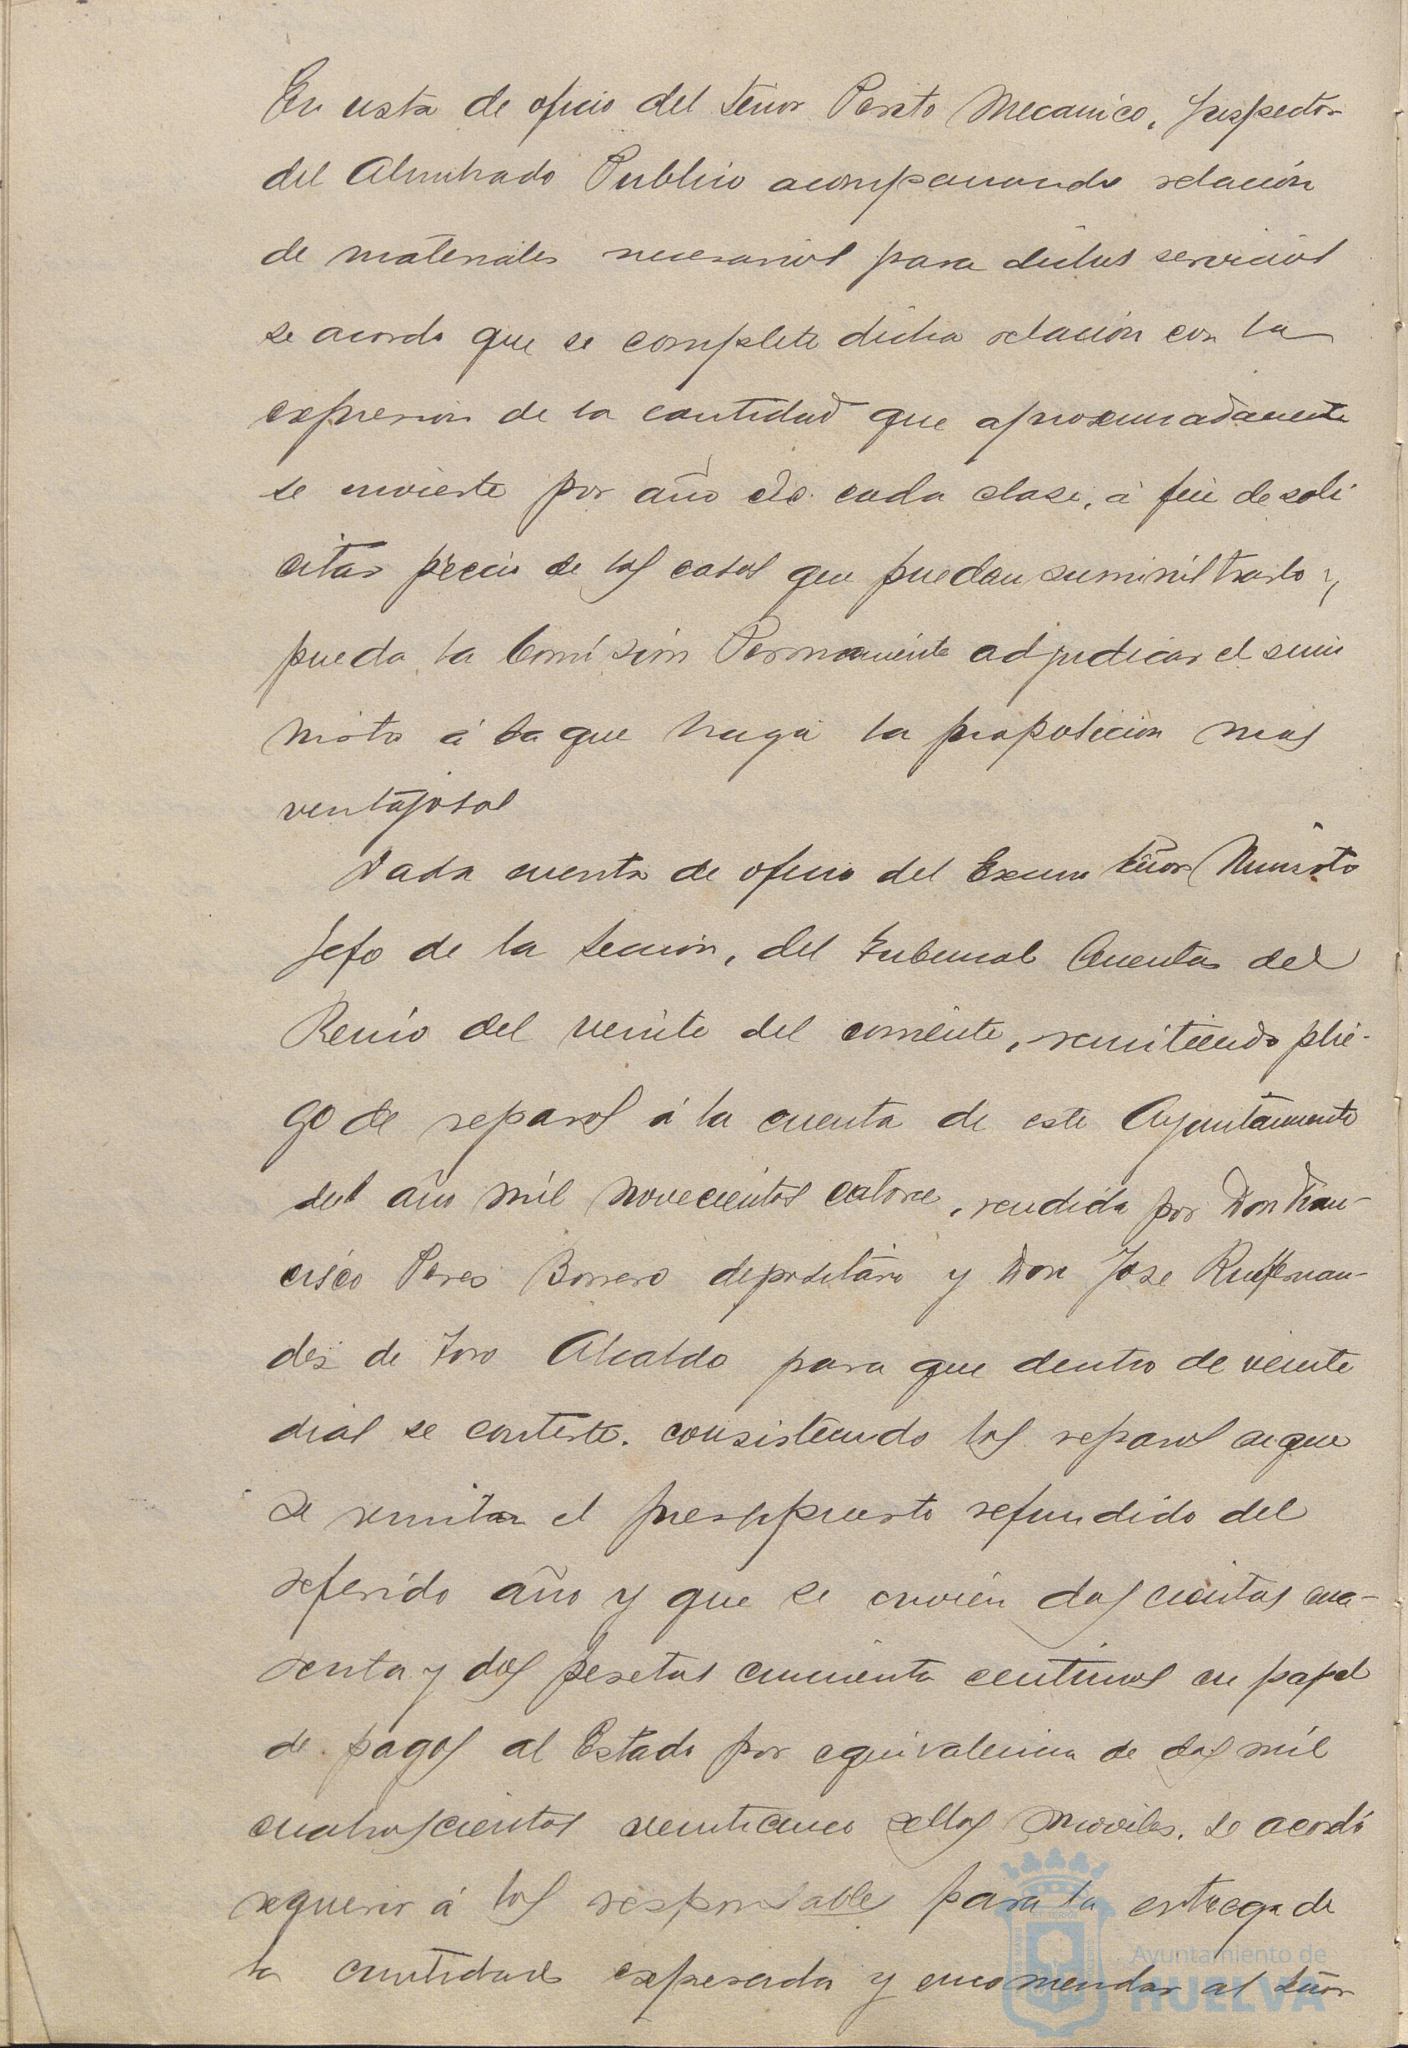 En vista de oficio del Señor Perito Mecanico, Inspector
del Alumbrado Publico acompanando relación
de materiales necesarios para dichos servicios
se acordo que se complete dicha relación con la
expresion de la cantidad que aproximadamente
se invierte por año de cada clase, á fin de soli
citar precio de las casas que puedan suministrarlo y
pueda la Comisión Permanente adjudicar el sumi
nistro á la que haga la proposicion mas
ventajosa
Dada cuenta de oficio del Excmo Señor Ministro
Jefe de la Sección, del Tribunal Cuentas del
Reino del veinte del corriente, remitiendo plie-
go de reparos á la cuenta de este Ayuntamiento
del año mil novecientos catorce, rendida por Don Fran-
cisco Perez Borrero depositario y Don Jose Ruifernan-
dez de Toro Alcalde para que dentro de veinte
dias se conteste. consistiendo los reparos en que
se remita el presupuesto refundido del
referido año y que se envien doscientas cua-
renta y dos pesetas cincuenta centimos en papel
de pagos al Estado por equivalencia de dos mil
cuatroscientos veinticinco sellos moviles. Se acordó
requerir á los responsable para la entrega de
la cantidad expresada y encomendar al Señor
Ayuntamiento de
HUELVA